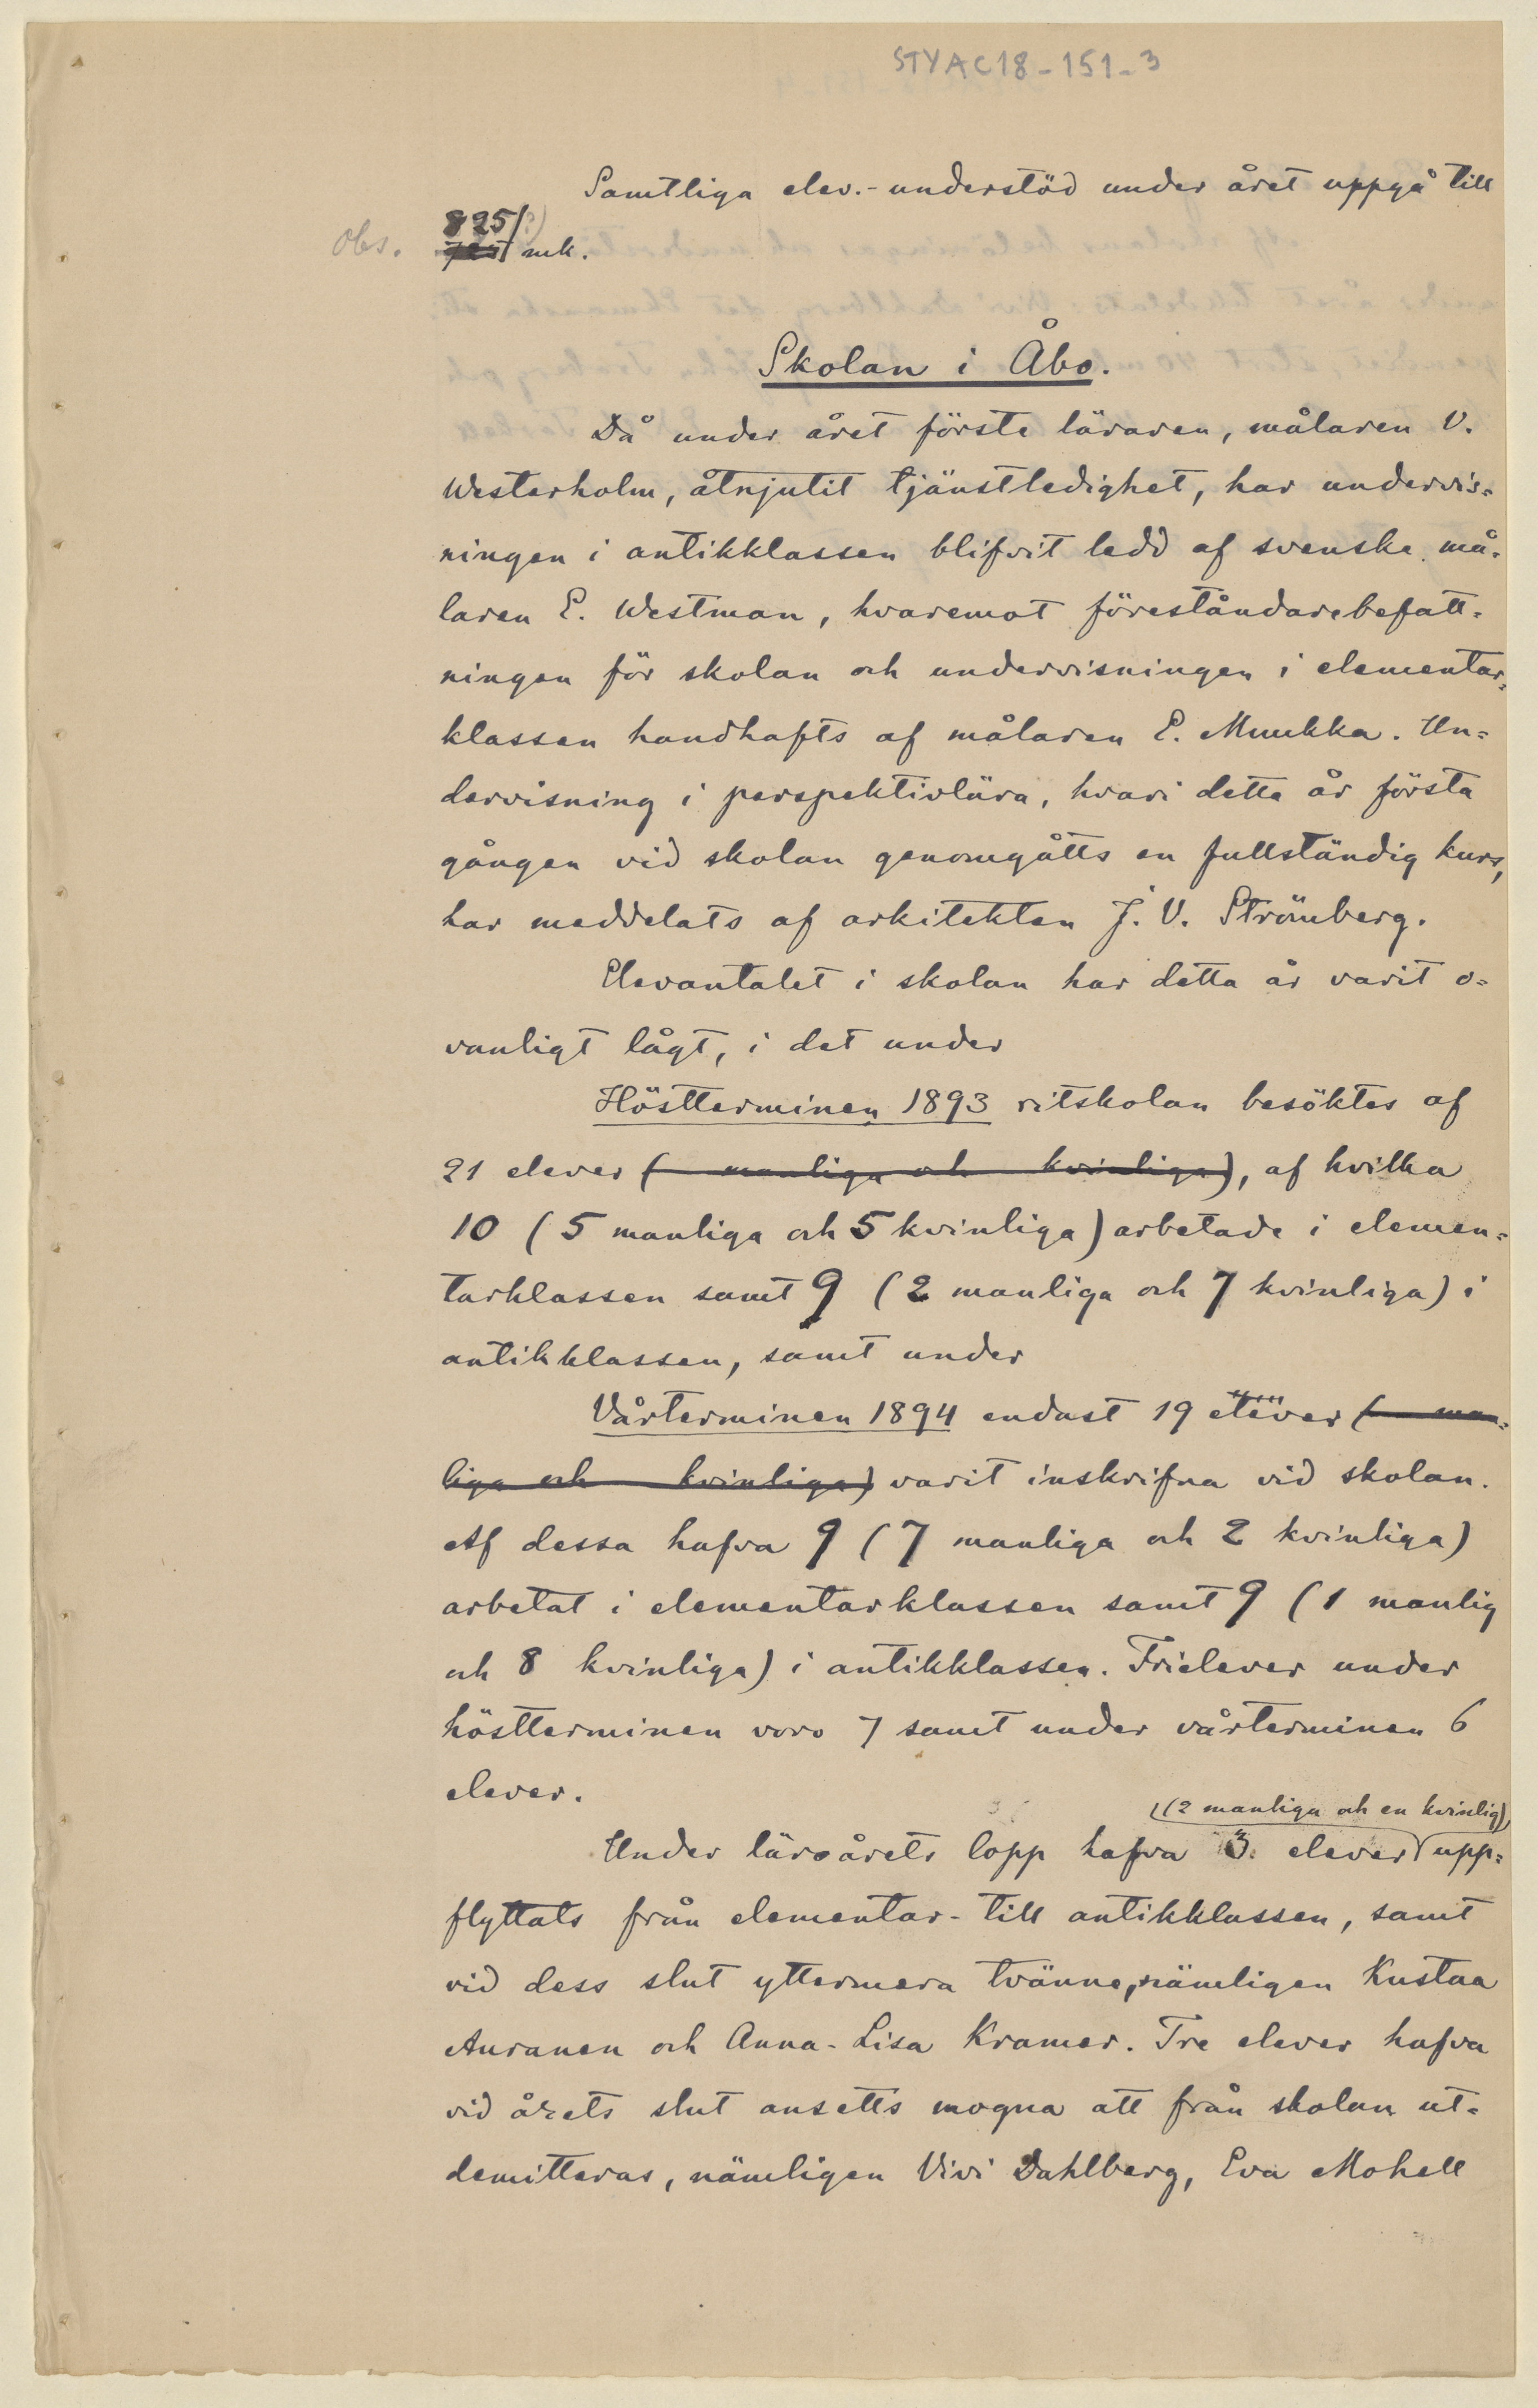 STYAC18-151-3
Samtliga elev.-understöd under året uppgå till
825(?)
Obs. mk.
Skolan i Åbo.
Då under året förste läraren, målaren V.
Westerholm, åtnjutit tjänstledighet, har undervis-
ningen i antikklassen blifvit ledd af svenske må-
laren E. Westman, hvaremot föreståndarebefatt-
ningen för skolan och undervisningen i elementar-
klassen handhafts af målaren E. Muukka. Un-
dervisning i perspektivlära, hvari detta år första
gången vid skolan genomgåtts en fullständig kurs,
har meddelats af arkitekten J. V. Strömberg.
Elevantalet i skolan har detta år varit o-
vanligt lågt, i det under
Höstterminen 1893 ritskolan besöktes af
21 elever ( manliga och kvinliga), af hvilka
10 (5 manliga och 5 kvinliga) arbetade i elemen-
tarklassen samt 9 (2 manliga och 7 kvinliga) i
antikklassen, samt under
Vårterminen 1894 endast 19 elever ( man-
liga och kvinliga) varit inskrifna vid skolan.
Af dessa hafva 9 (7 manliga och 2 kvinliga)
arbetat i elementarklassen samt 9 (1 manlig
och 8 kvinliga) i antikklassen. Frielever under
höstterminen voro 7 samt under vårterminen 6
elever.
(2 manliga och en kvinlig)
Under läroårets lopp hafva 3 elever upp-
flyttats från elementar- till antikklassen, samt
vid dess slut yttermera tvänne, nämligen Kustaa
Auranen och Anna-Lisa Kramer. Tre elever hafva
vid årets slut ansetts mogna att från skolan ut-
demitteras, nämligen Vivi Dahlberg, Eva Mohell